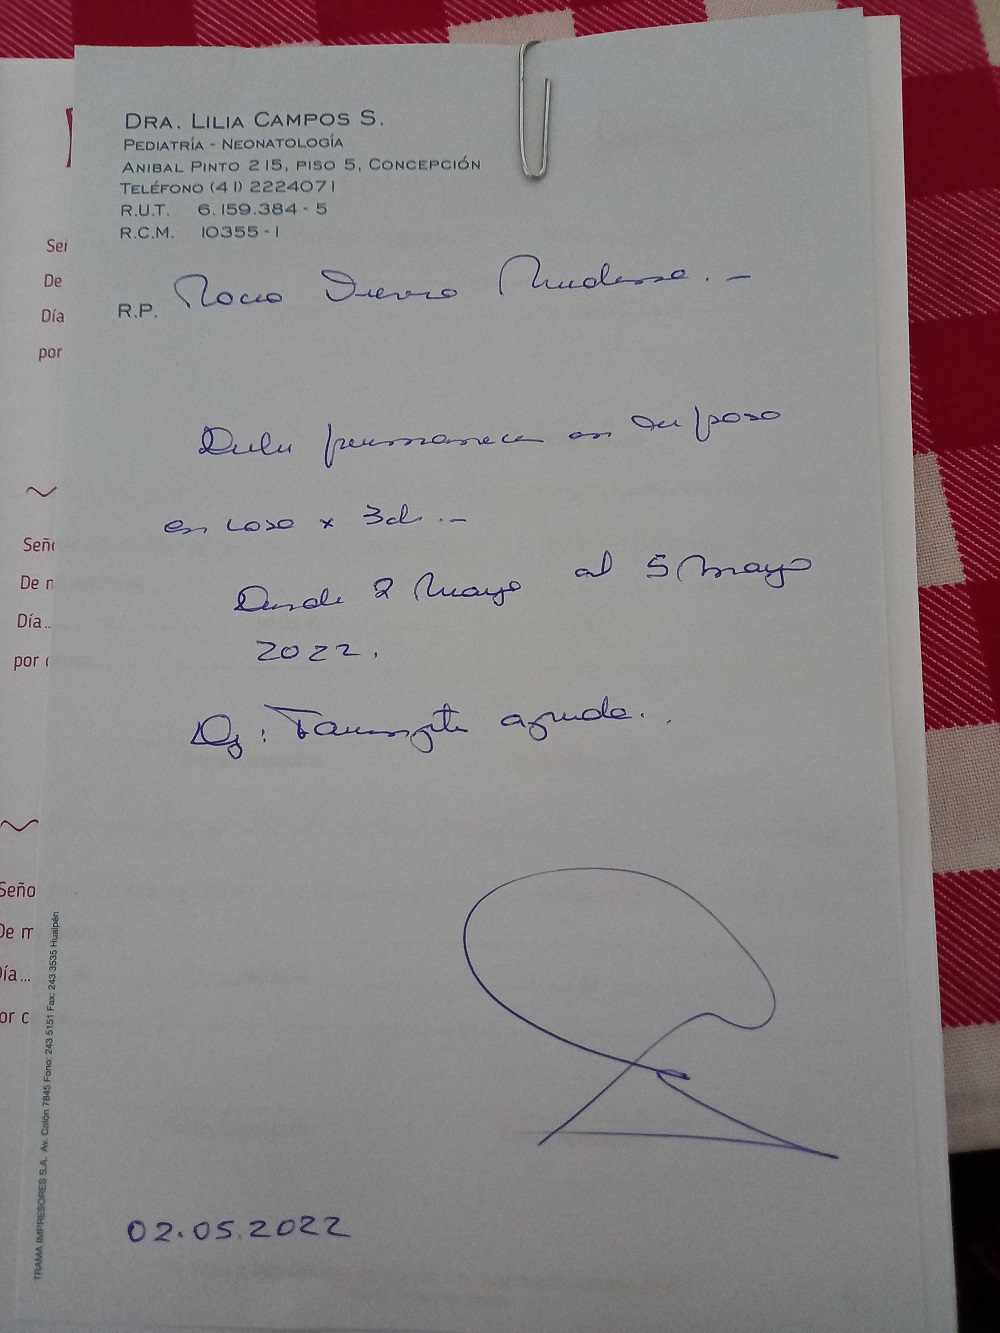 DRA. LILIA CAMPOS S.
PEDIATRÍA - NEONATOLOGÍA
ANIBAL PINTO 215, PISO 5, CONCEPCIÓN
TELÉFONO (41) 2224071
R.U.T. 6.159.384-5
R.C.M. 10355-1
R.P. Rocio
Debe permanecer en su
en casa x 3d.-
Desde 2 Mayo al 5 Mayo
2022.
Dg: aguda.
02.05.2022
TRAMA IMPRESORES S.A. Av. Colón 7845 Fono: 243 5151 Fax: 243 3535 Hualpén
Sei
De
Día
por
Seño
De n
Día..
por
Seño
De m
ía...
or c